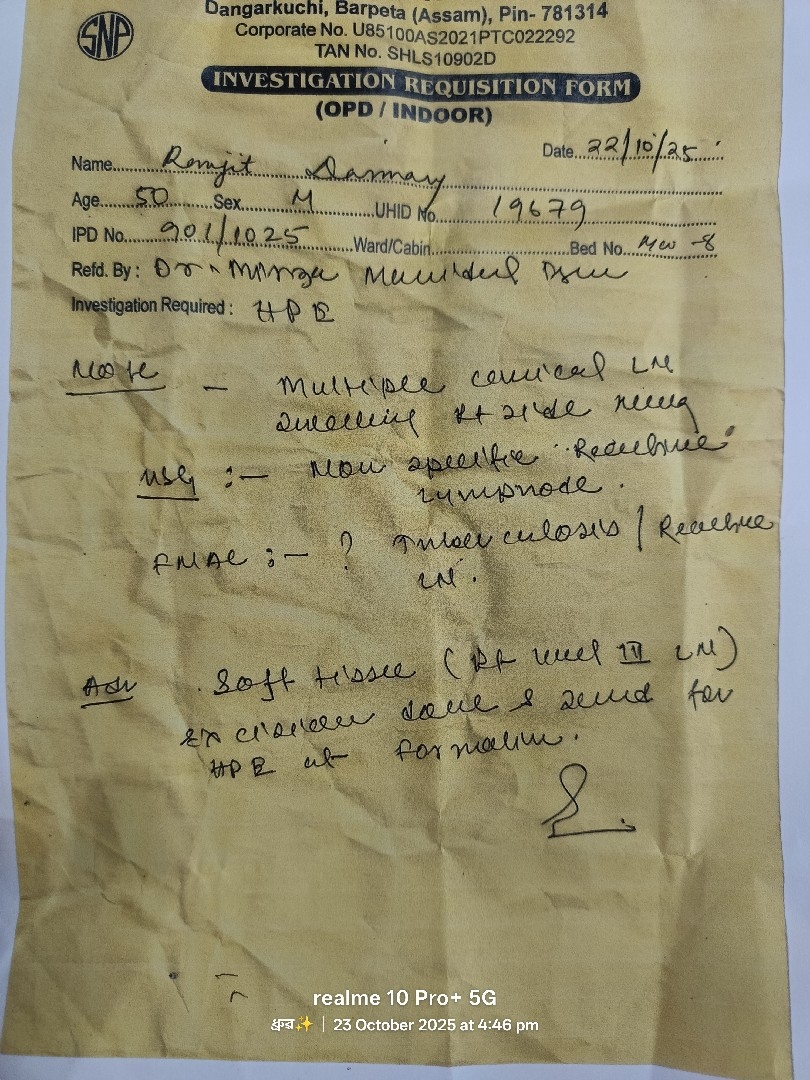 SNP
Dangarkuchi, Barpeta (Assam), Pin- 781314
Corporate No. U85100AS2021PTC022292
TAN No. SHLS10902D
INVESTIGATION REQUISITION FORM
(OPD / INDOOR)
Date...22/10/25
Name......
Age....50....Sex....M....UHID No....19679
IPD No....901/1025....Ward/Cabin........Bed No... -8
Refd. By : Dr
Investigation Required : HPE
Note - Multiple cervical LN
swelling Rt side
USG :- Non specific Reactive
Lymphnode.
FNAC :- ? Tuberculosis / Reactive
LN.
Adv Soft tissue (Rt level III LN)
Excision done & send for
HPE at formalin.
realme 10 Pro+ 5G
ধ্রুব✨ | 23 October 2025 at 4:46 pm